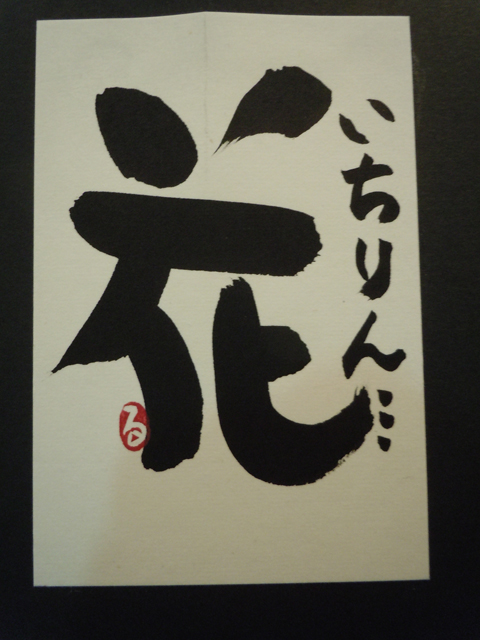 いちりん…
花
る